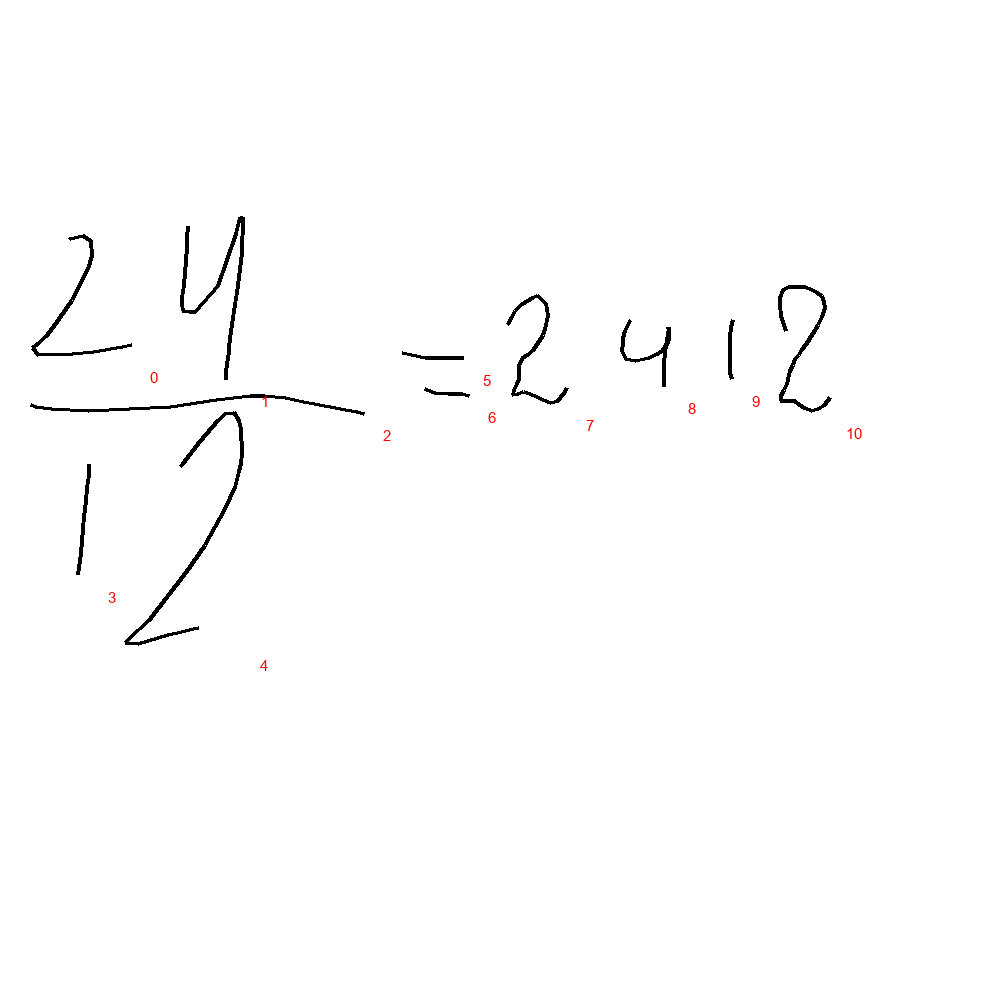 24
12
= 2412
0
1
2
3
4
5
6
7
8
9
10